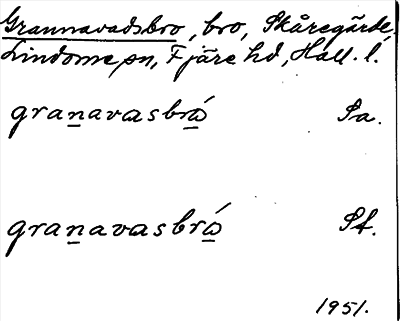 Grannavadsbro, bro, Skåregärde,
Lindome sn, Fjäre hd, Hall. l.
granavasbró Sa.
granavasbró St.
1951.